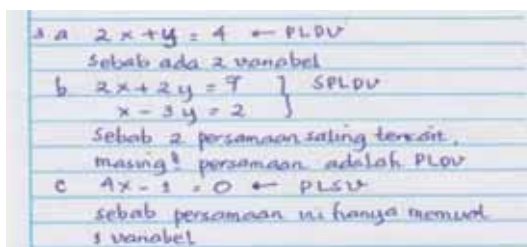 3 a 2x + y = 4 ← PLDV
Sebab ada 2 variabel
b 2x + 2y = 7 } SPLDV
x - 3y = 2
Sebab 2 persamaan saling terkait,
masing² persamaan adalah PLDV
c 4x - 1 = 0 ← PLSV
sebab persamaan ini hanya memuat
1 variabel